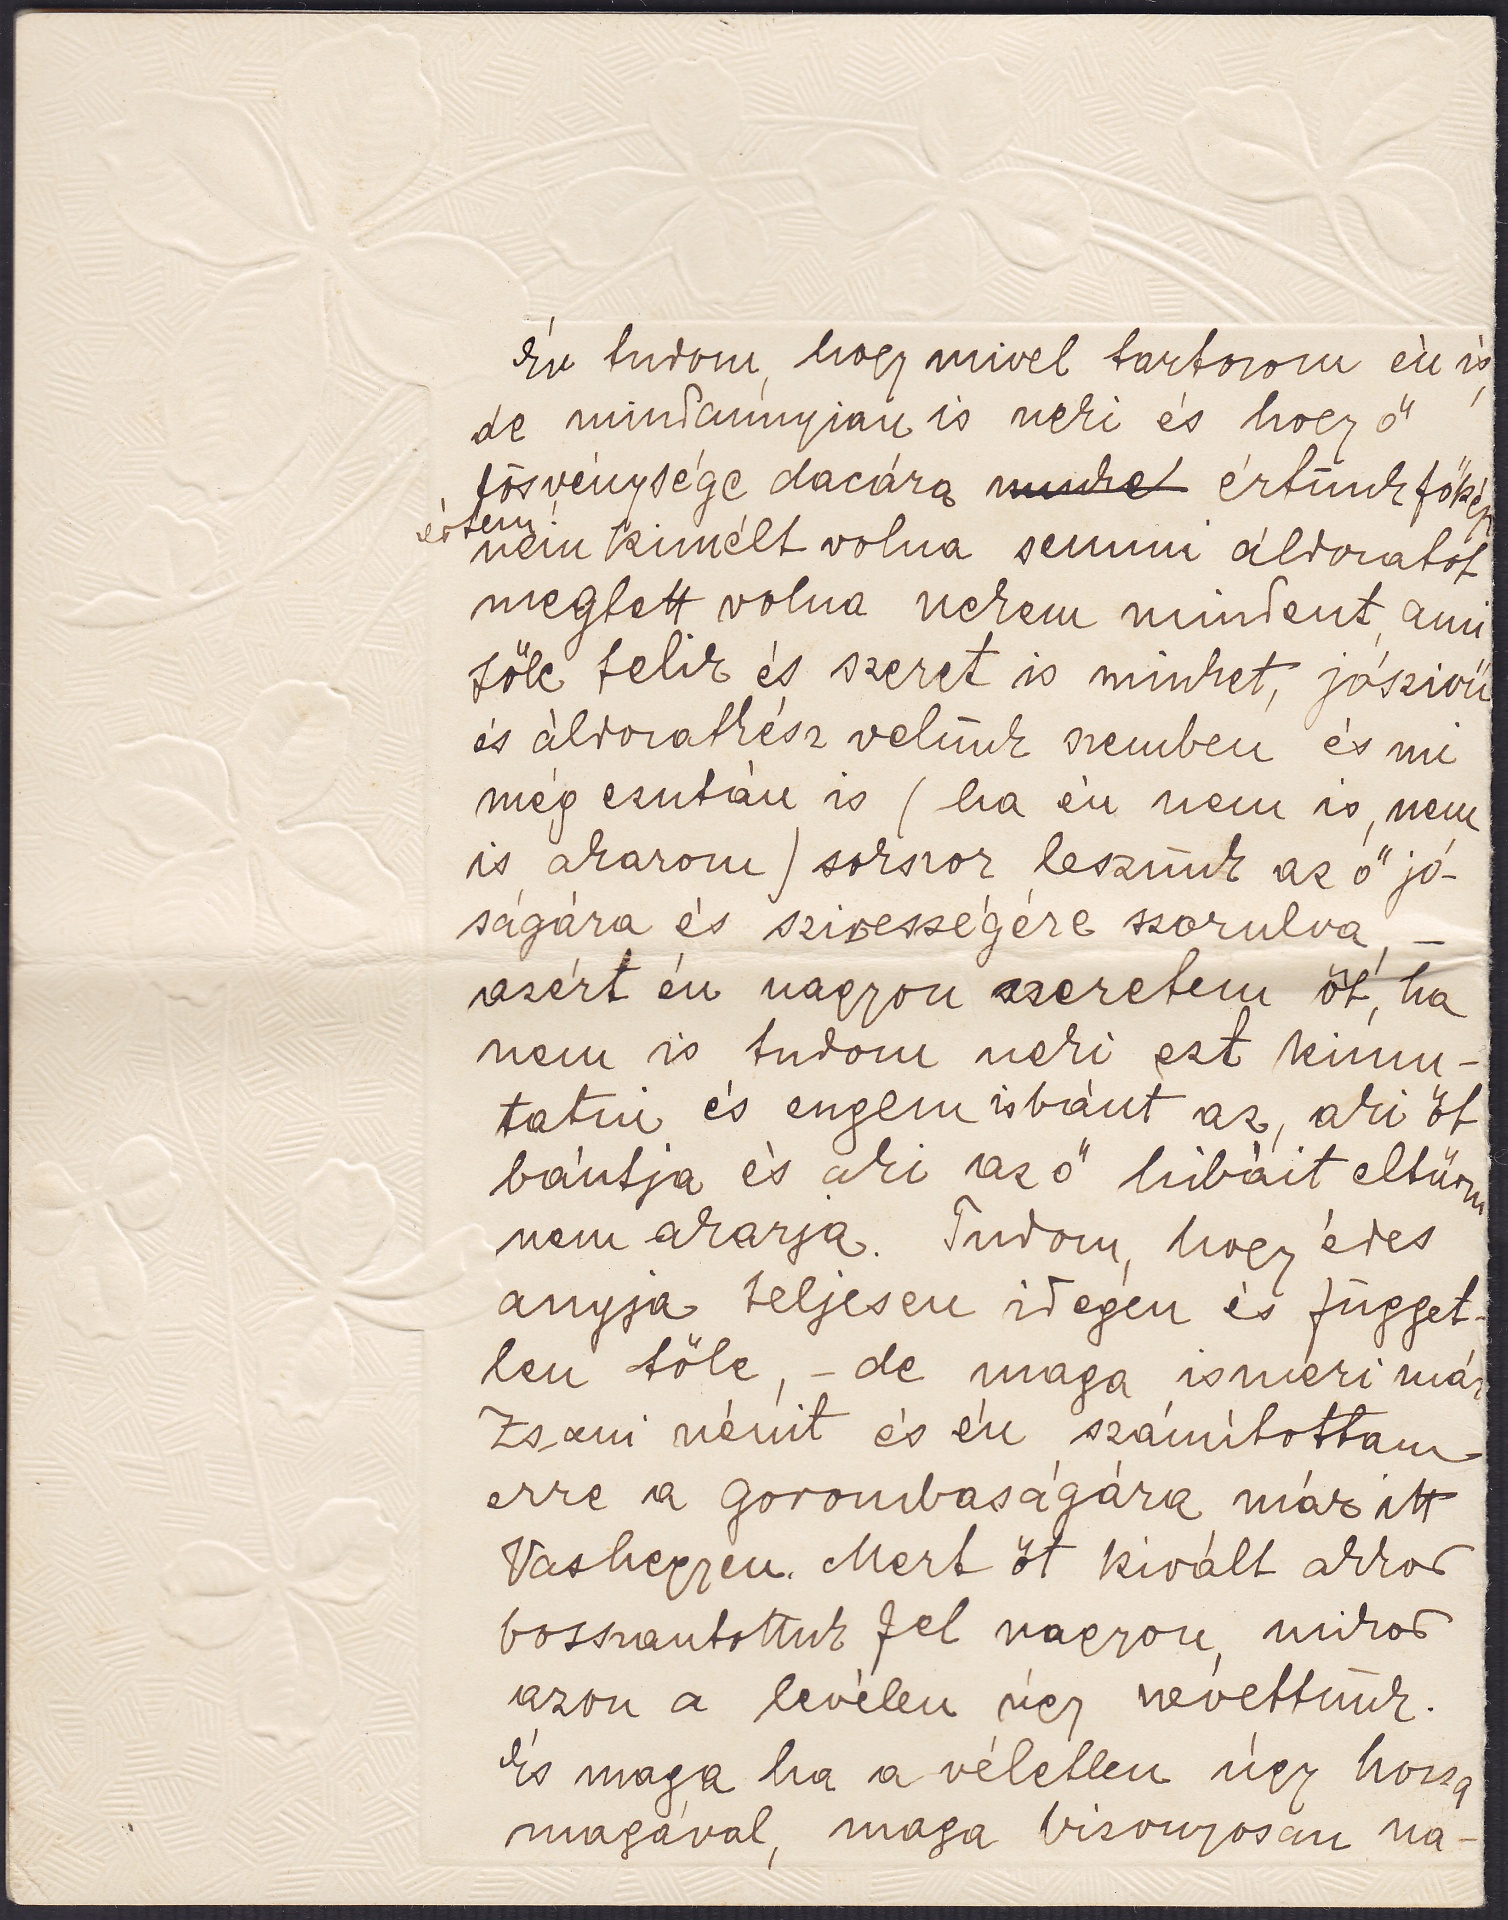 Én tudom, hogy mivel tartozom én is,
de mindannyian is neki és hogy ő
fösvénysége dacára minket értünk főkép
értem
nem kimélt volna semmi áldozatot
megtett volna nekem mindent, ami
tőle telik és szeret is minket, jószivü
és áldozatkész velünk szemben és mi
még ezután is (ha én nem is, nem
is akarom) sokszor leszünk az ő jó-
ságára és szivességére szorulva, –
azért én nagyon szeretem őt, ha
nem is tudom neki ezt kimu-
tatni és engem is bánt az, aki őt
bántja és aki az ő hibáit eltürni
nem akarja. Tudom, hogy édes
anyja teljesen idegen és függet-
len tőle, – de maga ismeri már
Zsani nénit és én számítottam
erre a gorombaságára már itt
Vashegyen. Mert őt kivált akkor
bosszantottuk fel nagyon, mikor
azon a levélen úgy nevettünk.
És maga ha a véletlen úgy hozza
magával, maga bizonyosan na-